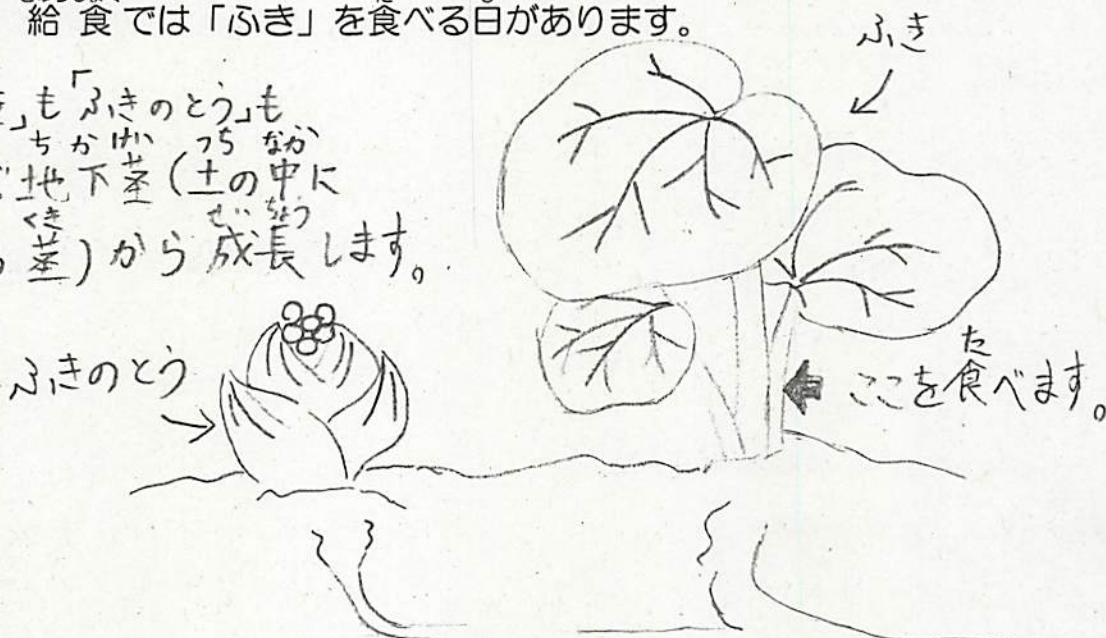 給食では「ふき」を食べる日があります。
ふき
」も「ふきのとう」も
ちかけい つち なか
地下茎(土の中に
くき せいちょう
茎)から成長します。
ふきのとう
た
ここを食べます。